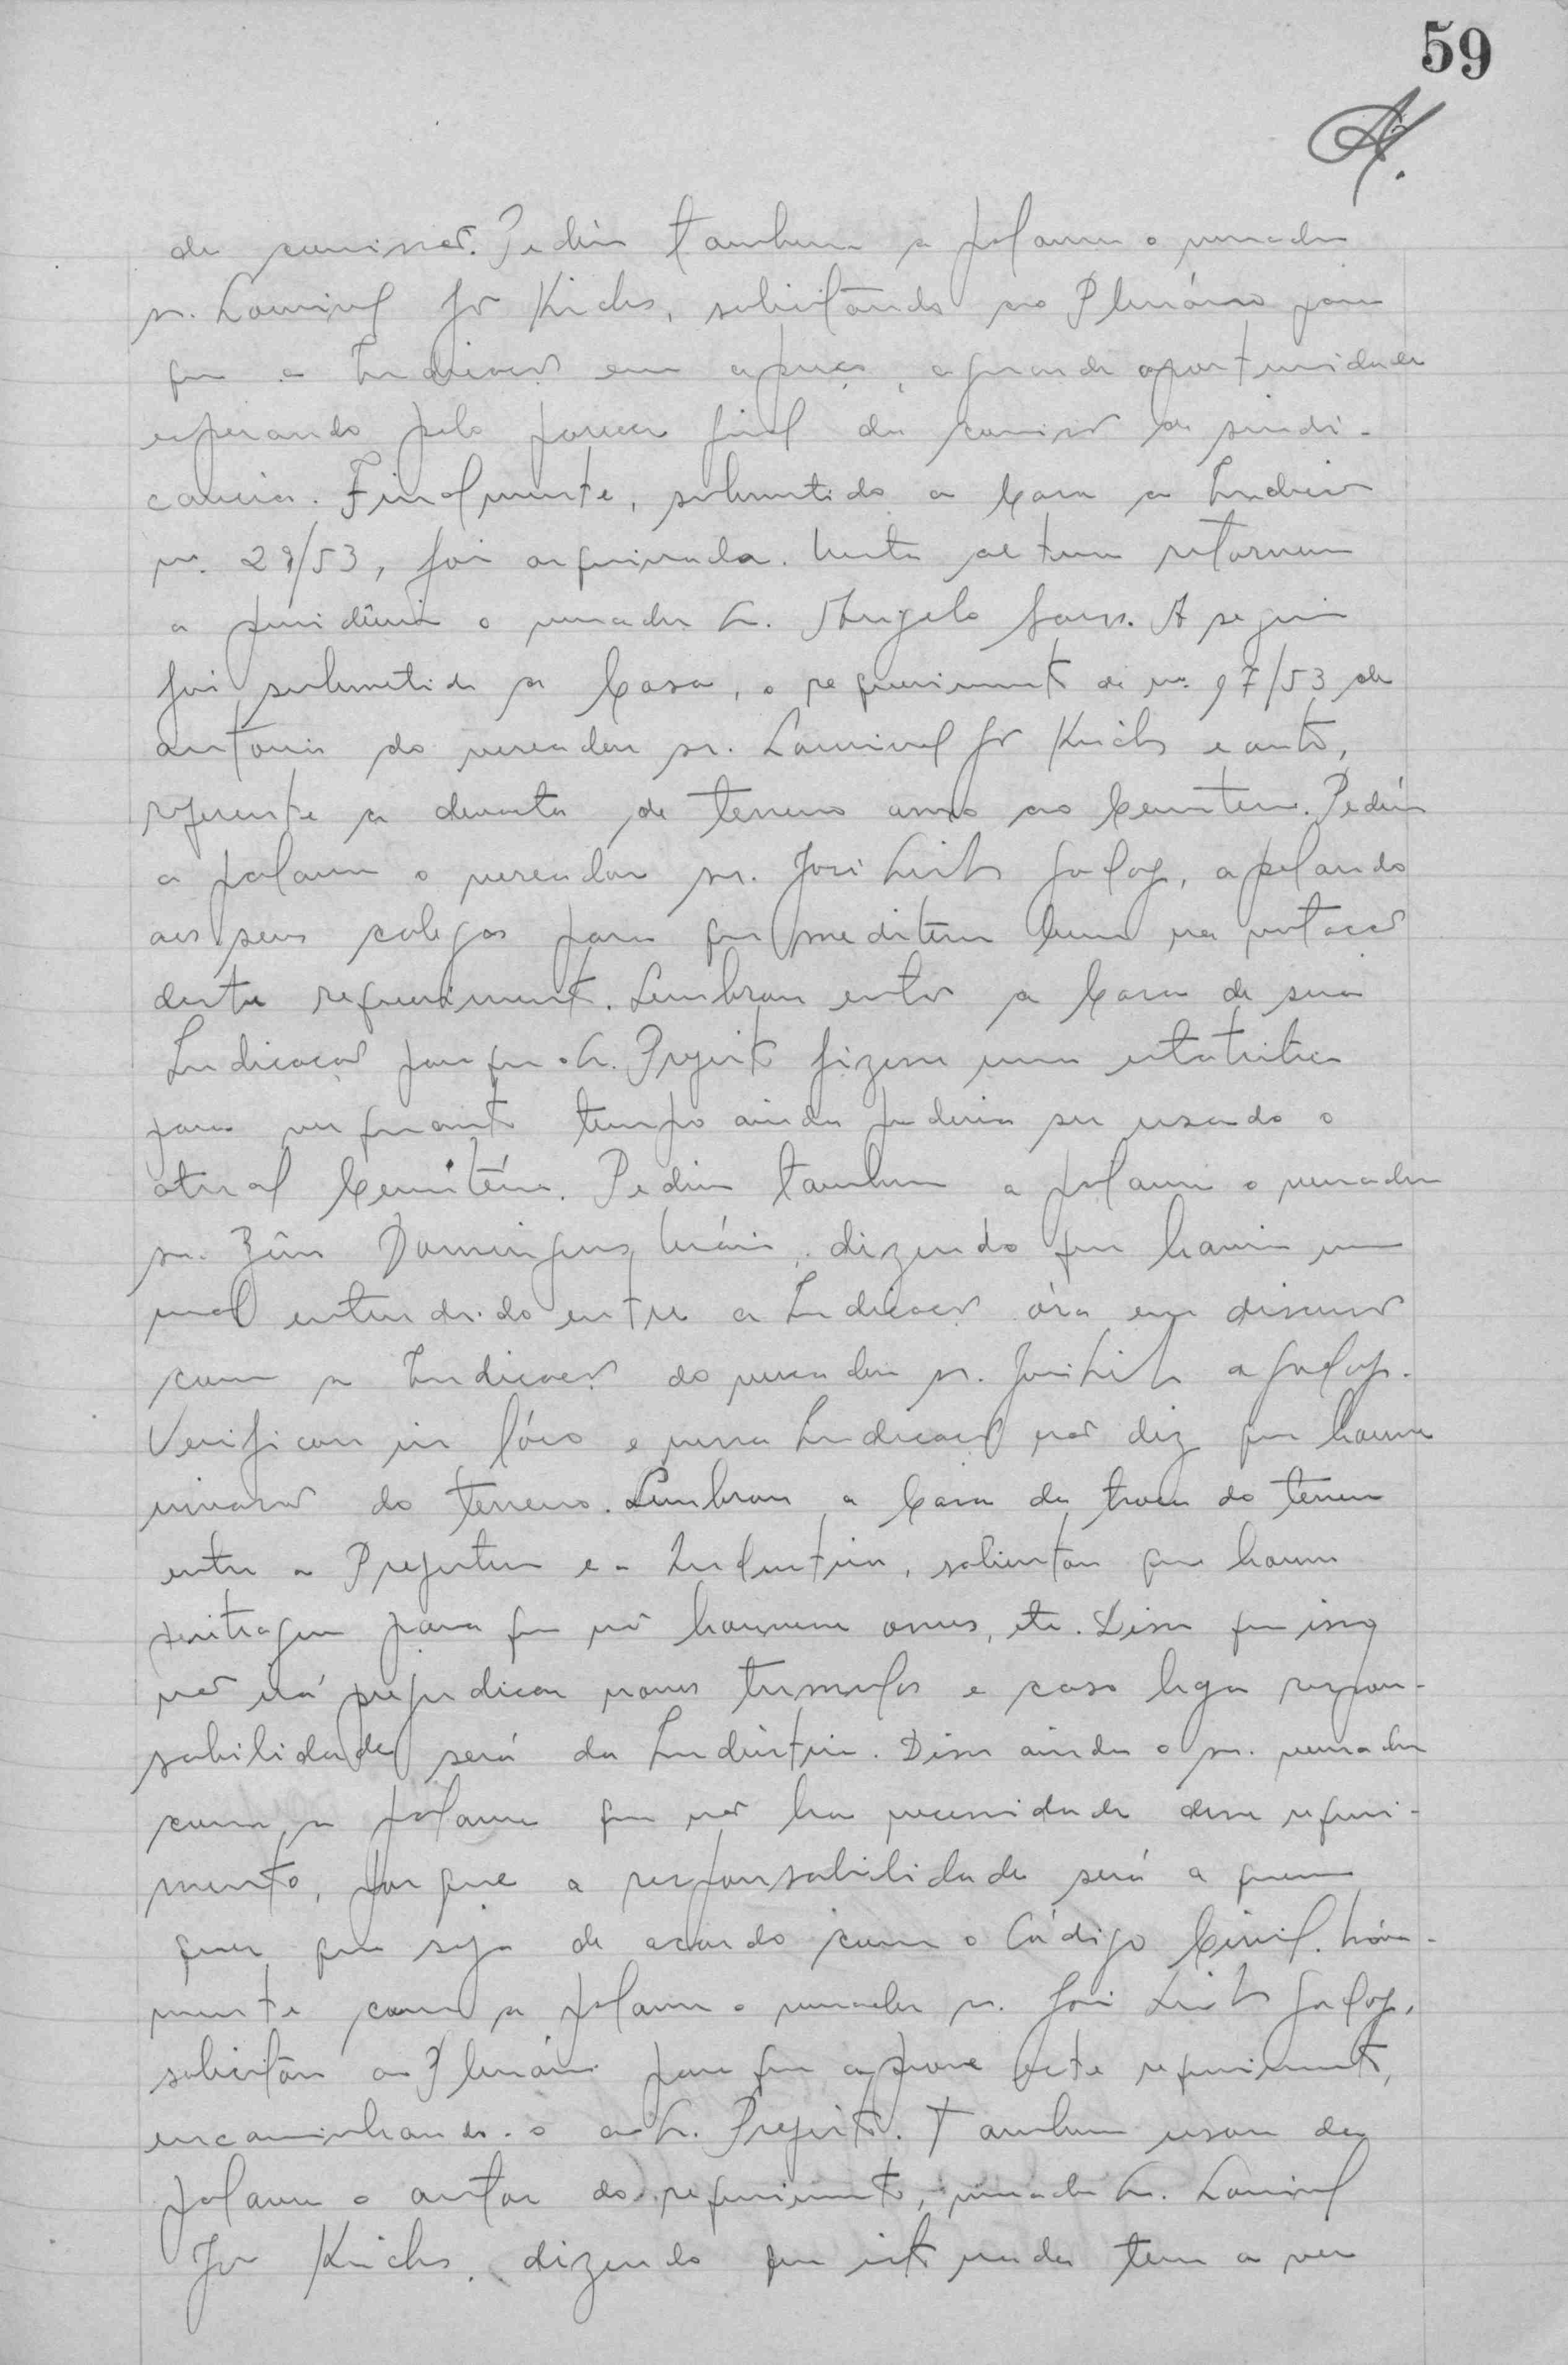 59
de comissão. Pediu tambem a palavra o vereador
sr. Lourival José Kirchs, solicitando ao Plenário para
que a Indicação em apreço, aguarde oportunidade
esperando pelo parecer final da comissão de sindi-
cancia. Finalmente, submetido a Casa a Indicação
nº. 29/53, foi arquivada. Nesta altura retornou
a presidência o vereador Sr. Angelo. A seguir
foi submetido a Casa, o requerimento de nº. 97/53 de
autoria do vereador sr. Lourival José Kirchs e outro,
referente a devoluta de terreno anexo ao Cemitério. Pediu
a palavra o vereador sr. José Godoy, apelando
aos seus colegas para que meditem bem na votação
deste requerimento. Lembrou então a Casa de sua
Indicação para que o Sr. Prefeito fizesse uma estatística
para ver quanto tempo ainda poderia ser usado o
atual Cemitério. Pediu tambem a palavra o vereador
sr. Domingues, dizendo que havia um
mal entendido entre a Indicação óra em discussão
com a Indicação do vereador sr. José Godoy.
Verificou in lóco e nessa Indicação não diz que houve
invasão do terreno. Lembrou a Casa da troca do terreno
entre a Prefeitura e a Industria, salientou que houve
para que não houvesse onus, etc. Disse que isso
não irá prejudicar novos tumulos e caso haja respon-
sabilidade será da Indústria. Disse ainda o sr. vereador
com a palavra que não ha necessidade desse requeri-
mento, por que a responsabilidade será a quem
quer que seja de acordo com o Código Civil. Nóva-
mente com a palavra o vereador sr. José Godoy,
solicitou ao Plenário para que aprove este requerimento,
encaminhando-o ao Sr. Prefeito. Tambem usou da
palavra o autor do requerimento, vereador Sr. Lourival
José Kirchs, dizendo que isto nada tem a ver